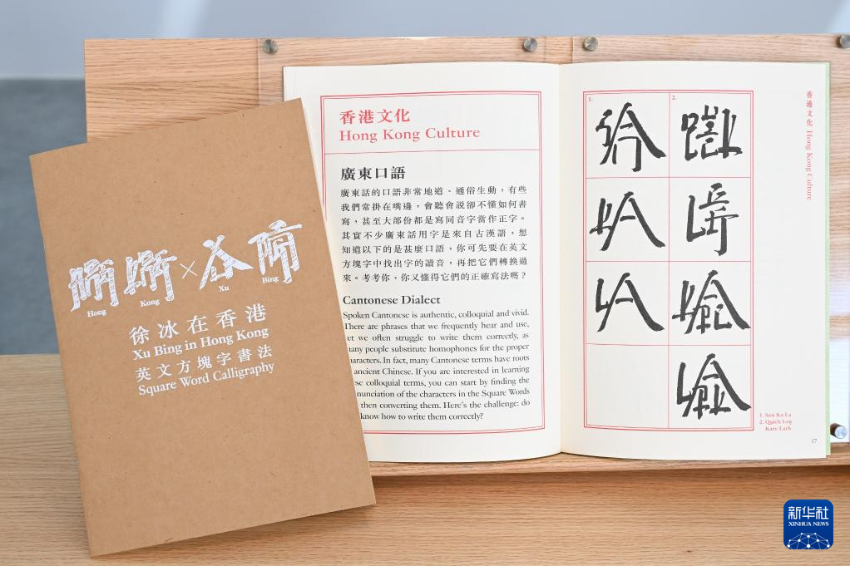 Hong
Kong
×
Xu
Bing
徐冰在香港
Xu Bing in Hong Kong
英文方塊字書法
Square Word Calligraphy
香港文化
Hong Kong Culture
廣東口語
廣東話的口語非常地道。通俗生動，有些
我們常掛在嘴邊，會聽會説卻不懂如何書
寫，甚至大部份都是寫同音字當作正字。
其實不少廣東話用字是來自古漢語，想
知道以下的是甚麼口語，你可先要在英文
方塊字中找出字的讀音，再把它們轉換過
來。考考你，你又懂得它們的正確寫法嗎？
Cantonese Dialect
Spoken Cantonese is authentic, colloquial and vivid.
There are phrases that we frequently hear and use,
we often struggle to write them correctly, as
people substitute homophones for the proper
characters. In fact, many Cantonese terms have roots
ancient Chinese. If you are interested in learning
colloquial terms, you can start by finding the
of the characters in the Square Words
then converting them. Here's the challenge: do
know how to write them correctly?
1.
2.
香港文化 Hong Kong Culture
1.
2.
17
新华社
XINHUA NEWS